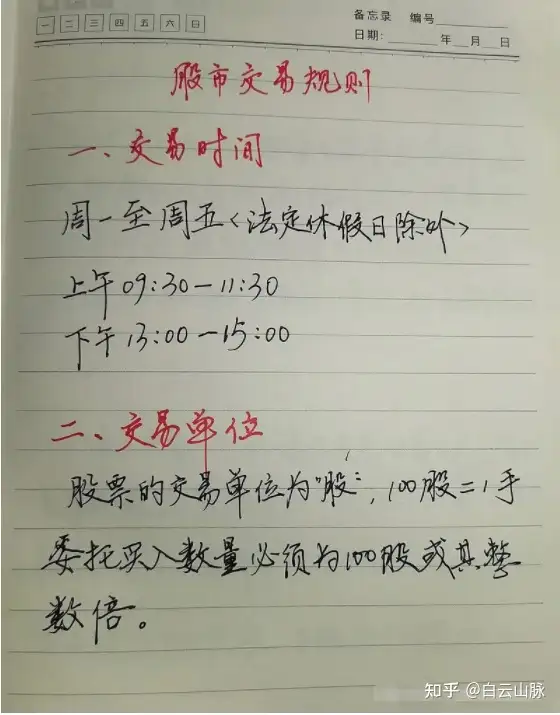 一 二 三 四 五 六 日
备忘录 编号
日期: 年 月 日
股市交易规则
一、交易时间
周一至周五<法定休假日除外>
上午09:30-11:30
下午13:00-15:00
二、交易单位
股票的交易单位为"股",100股=1手
委托买入数量必须为100股或其整
数倍。
知乎 @白云山脉